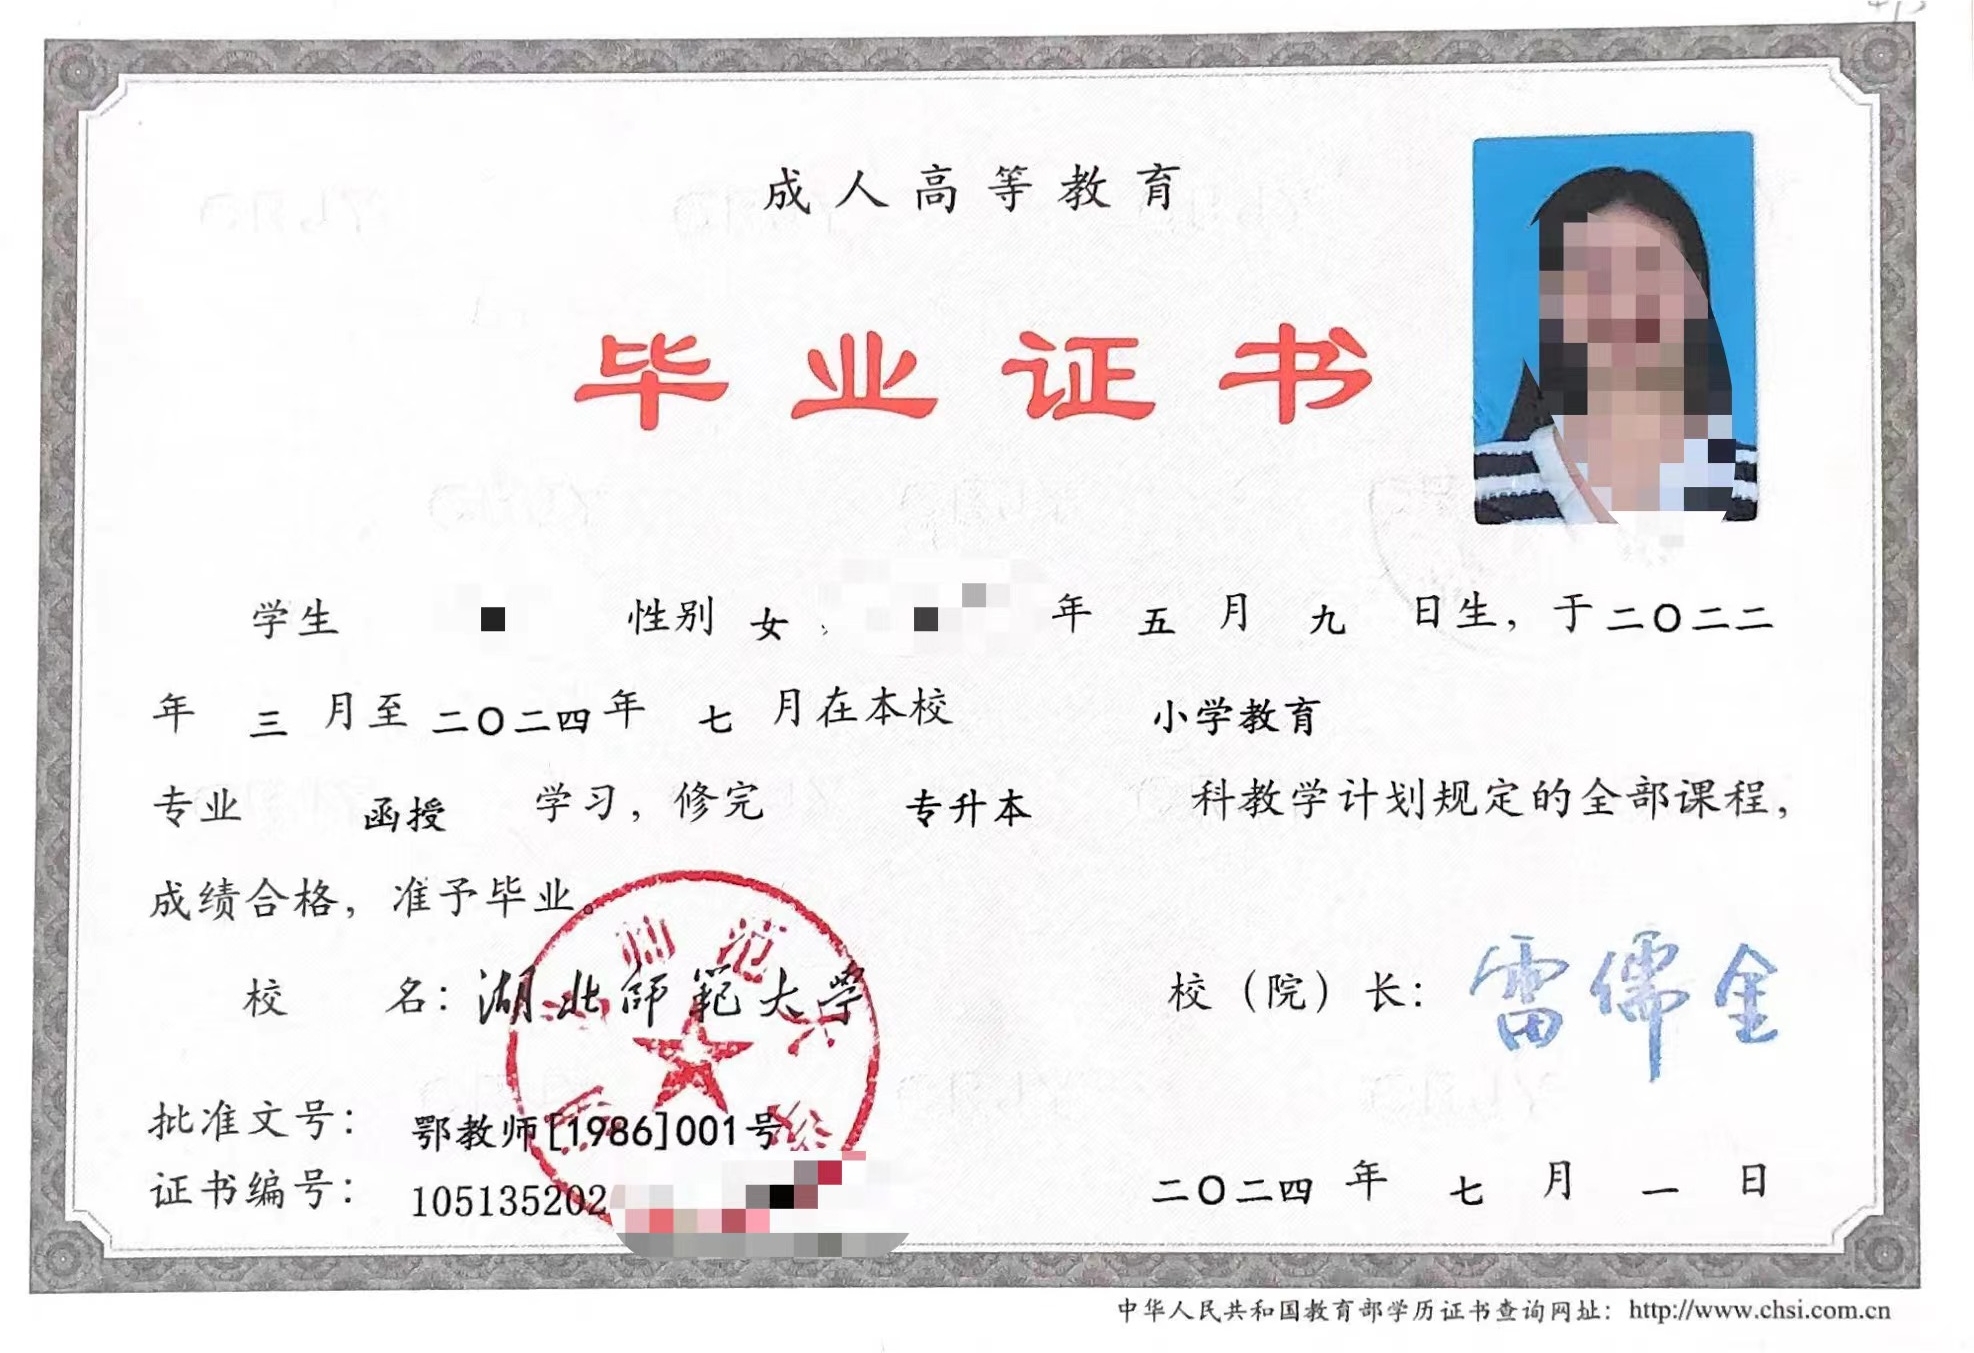 成人高等教育
毕业证书
学生 性别 女, 年 五 月 九 日生, 于二〇二二
年 三 月至 二〇二四年 七 月在本校 小学教育
专业 函授 学习, 修完 专升本 科教学计划规定的全部课程,
成绩合格, 准予毕业。
校 名: 湖北师范大学 校（院）长: 雷儒金
批准文号: 鄂教师[1986]001号
证书编号: 105135202
二〇二四 年 七 月 一 日
中华人民共和国教育部学历证书查询网址: http://www.chsi.com.cn